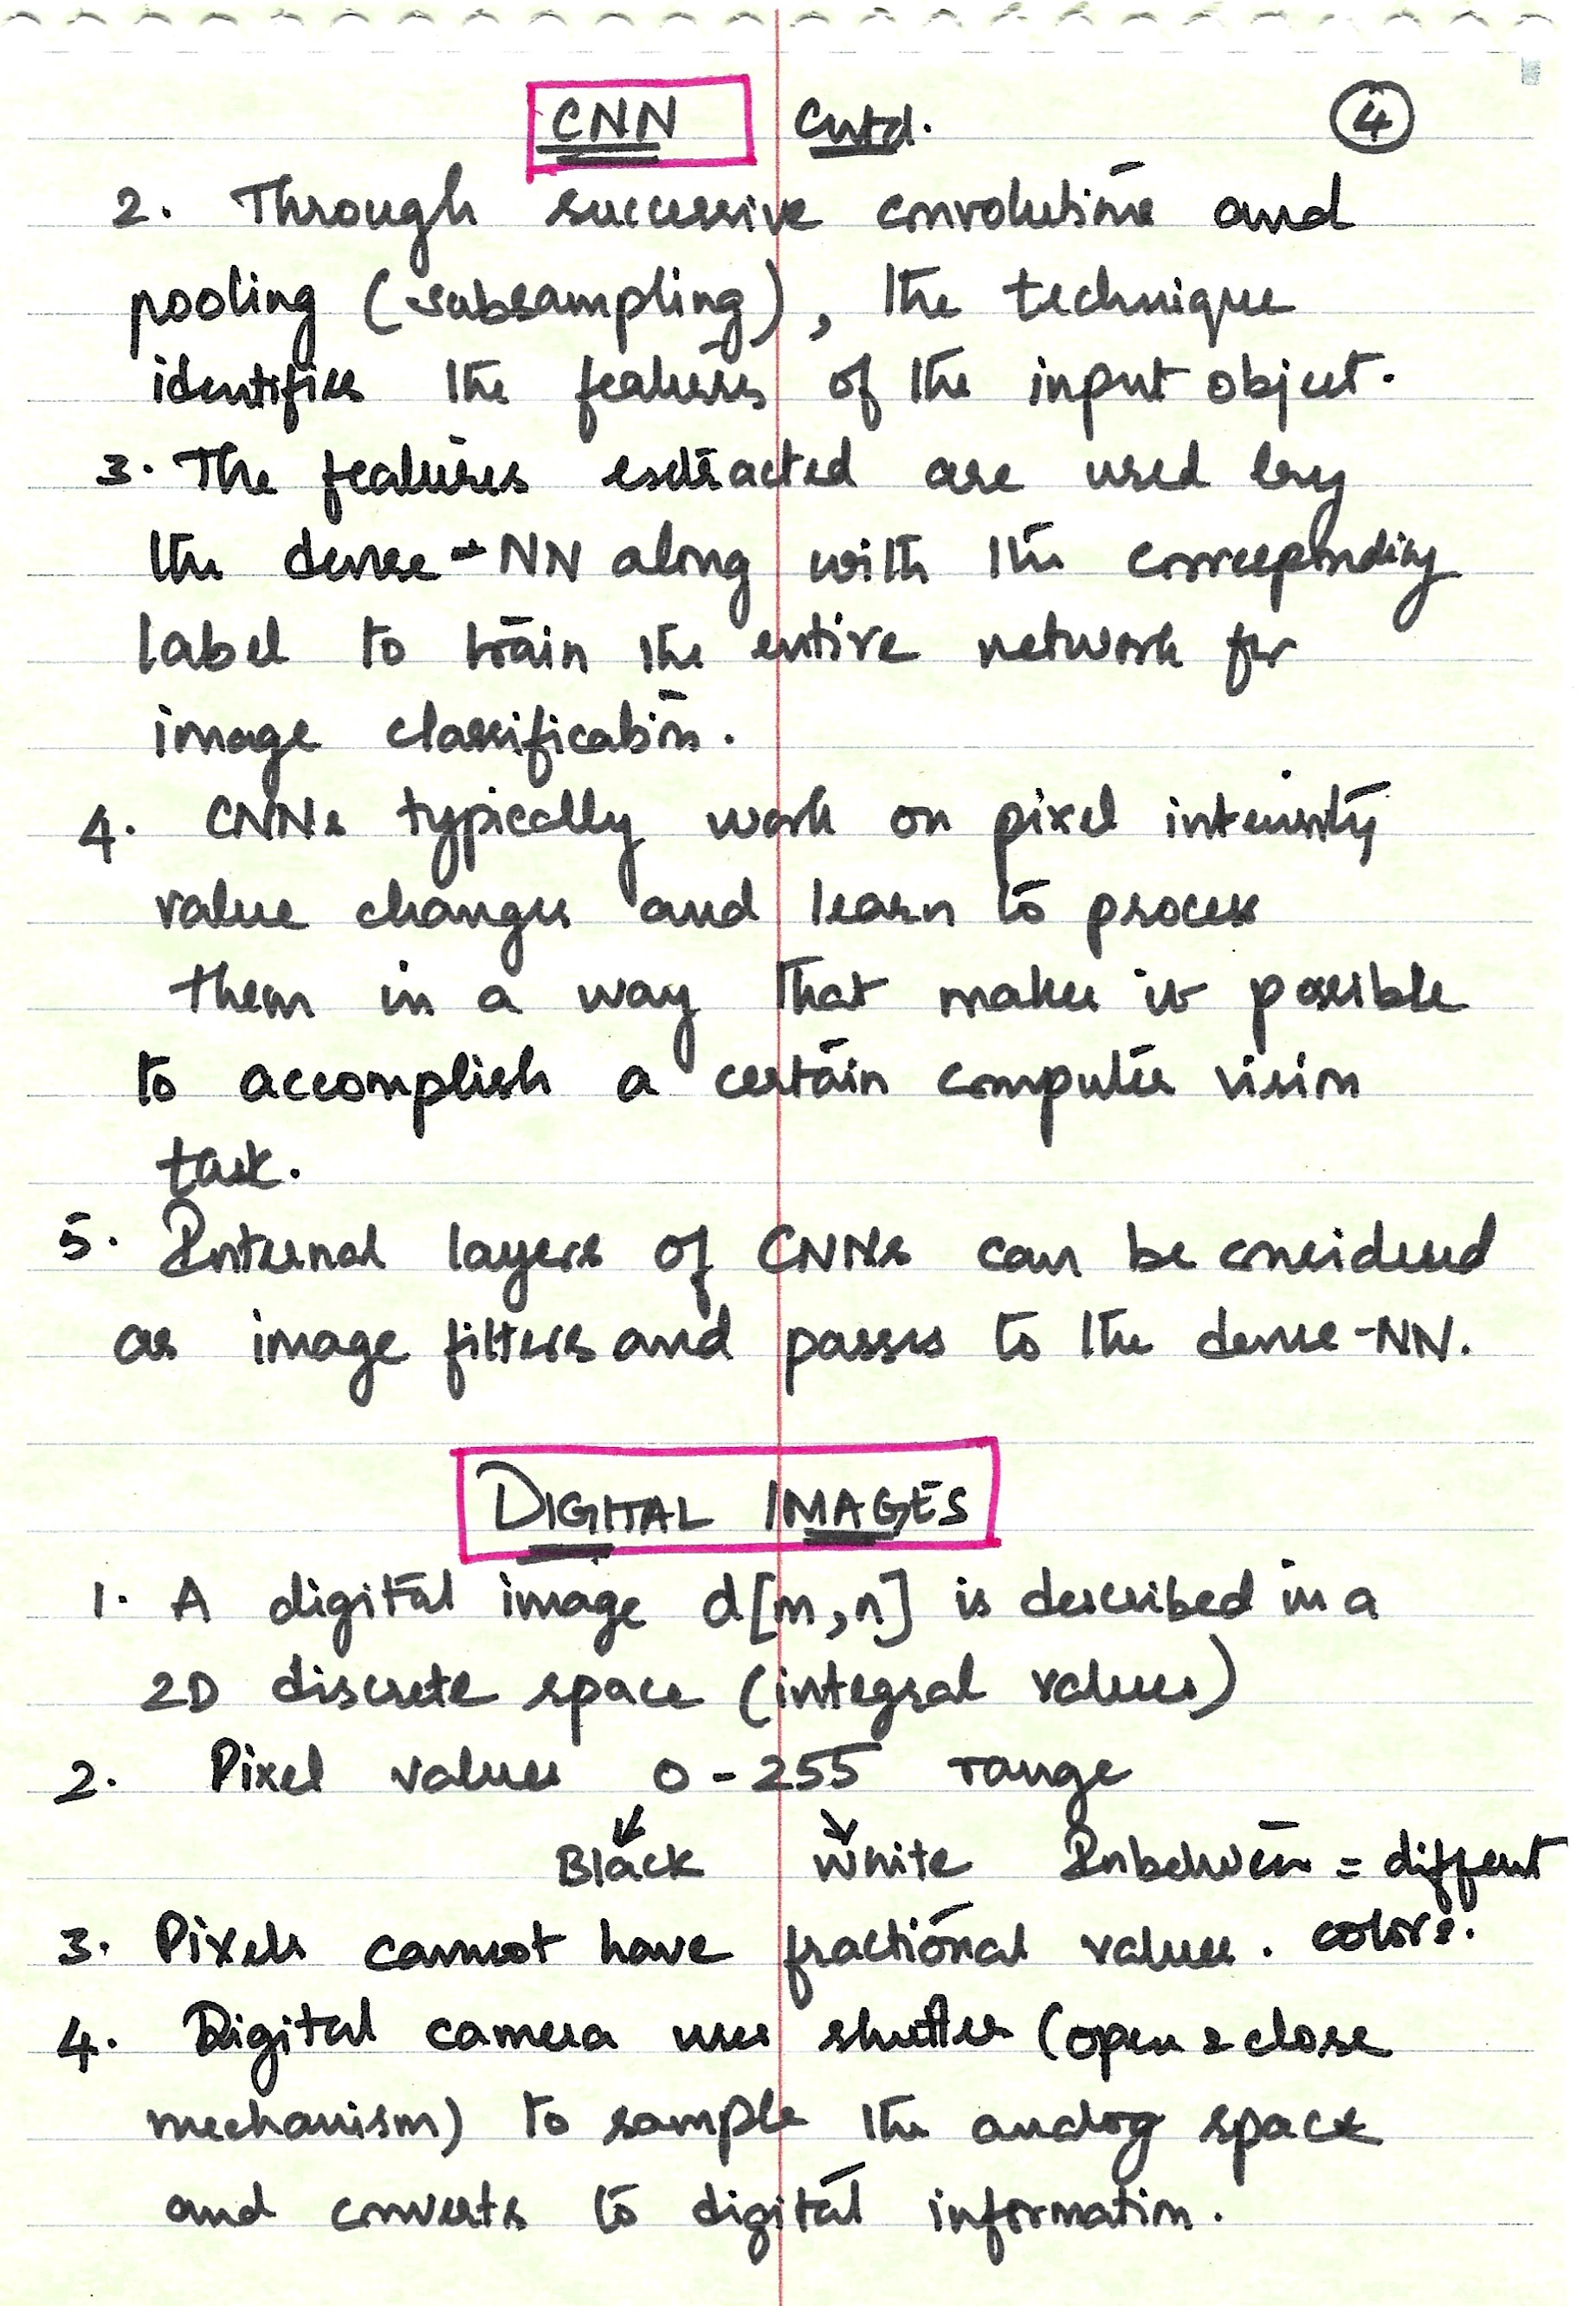 CNN Cntd. 4
2. Through successive convolutions and
pooling (subsampling), the technique
identifies the features of the input object.
3. The features extracted are used by
the dense-NN along with the corresponding
label to train the entire network for
image classification.
4. CNNs typically work on pixel intensity
value changes and learn to process
them in a way that makes it possible
to accomplish a certain computer vision
task.
5. Internal layers of CNNs can be considered
as image filters and passes to the dense-NN.
DIGITAL IMAGES
1. A digital image d[m,n] is described in a
2D discrete space (integral values)
2. Pixel values 0-255 range
Black White Inbetween = different
colors.
3. Pixels cannot have fractional values.
4. Digital camera uses shutter (open & close
mechanism) to sample the analog space
and converts to digital information.